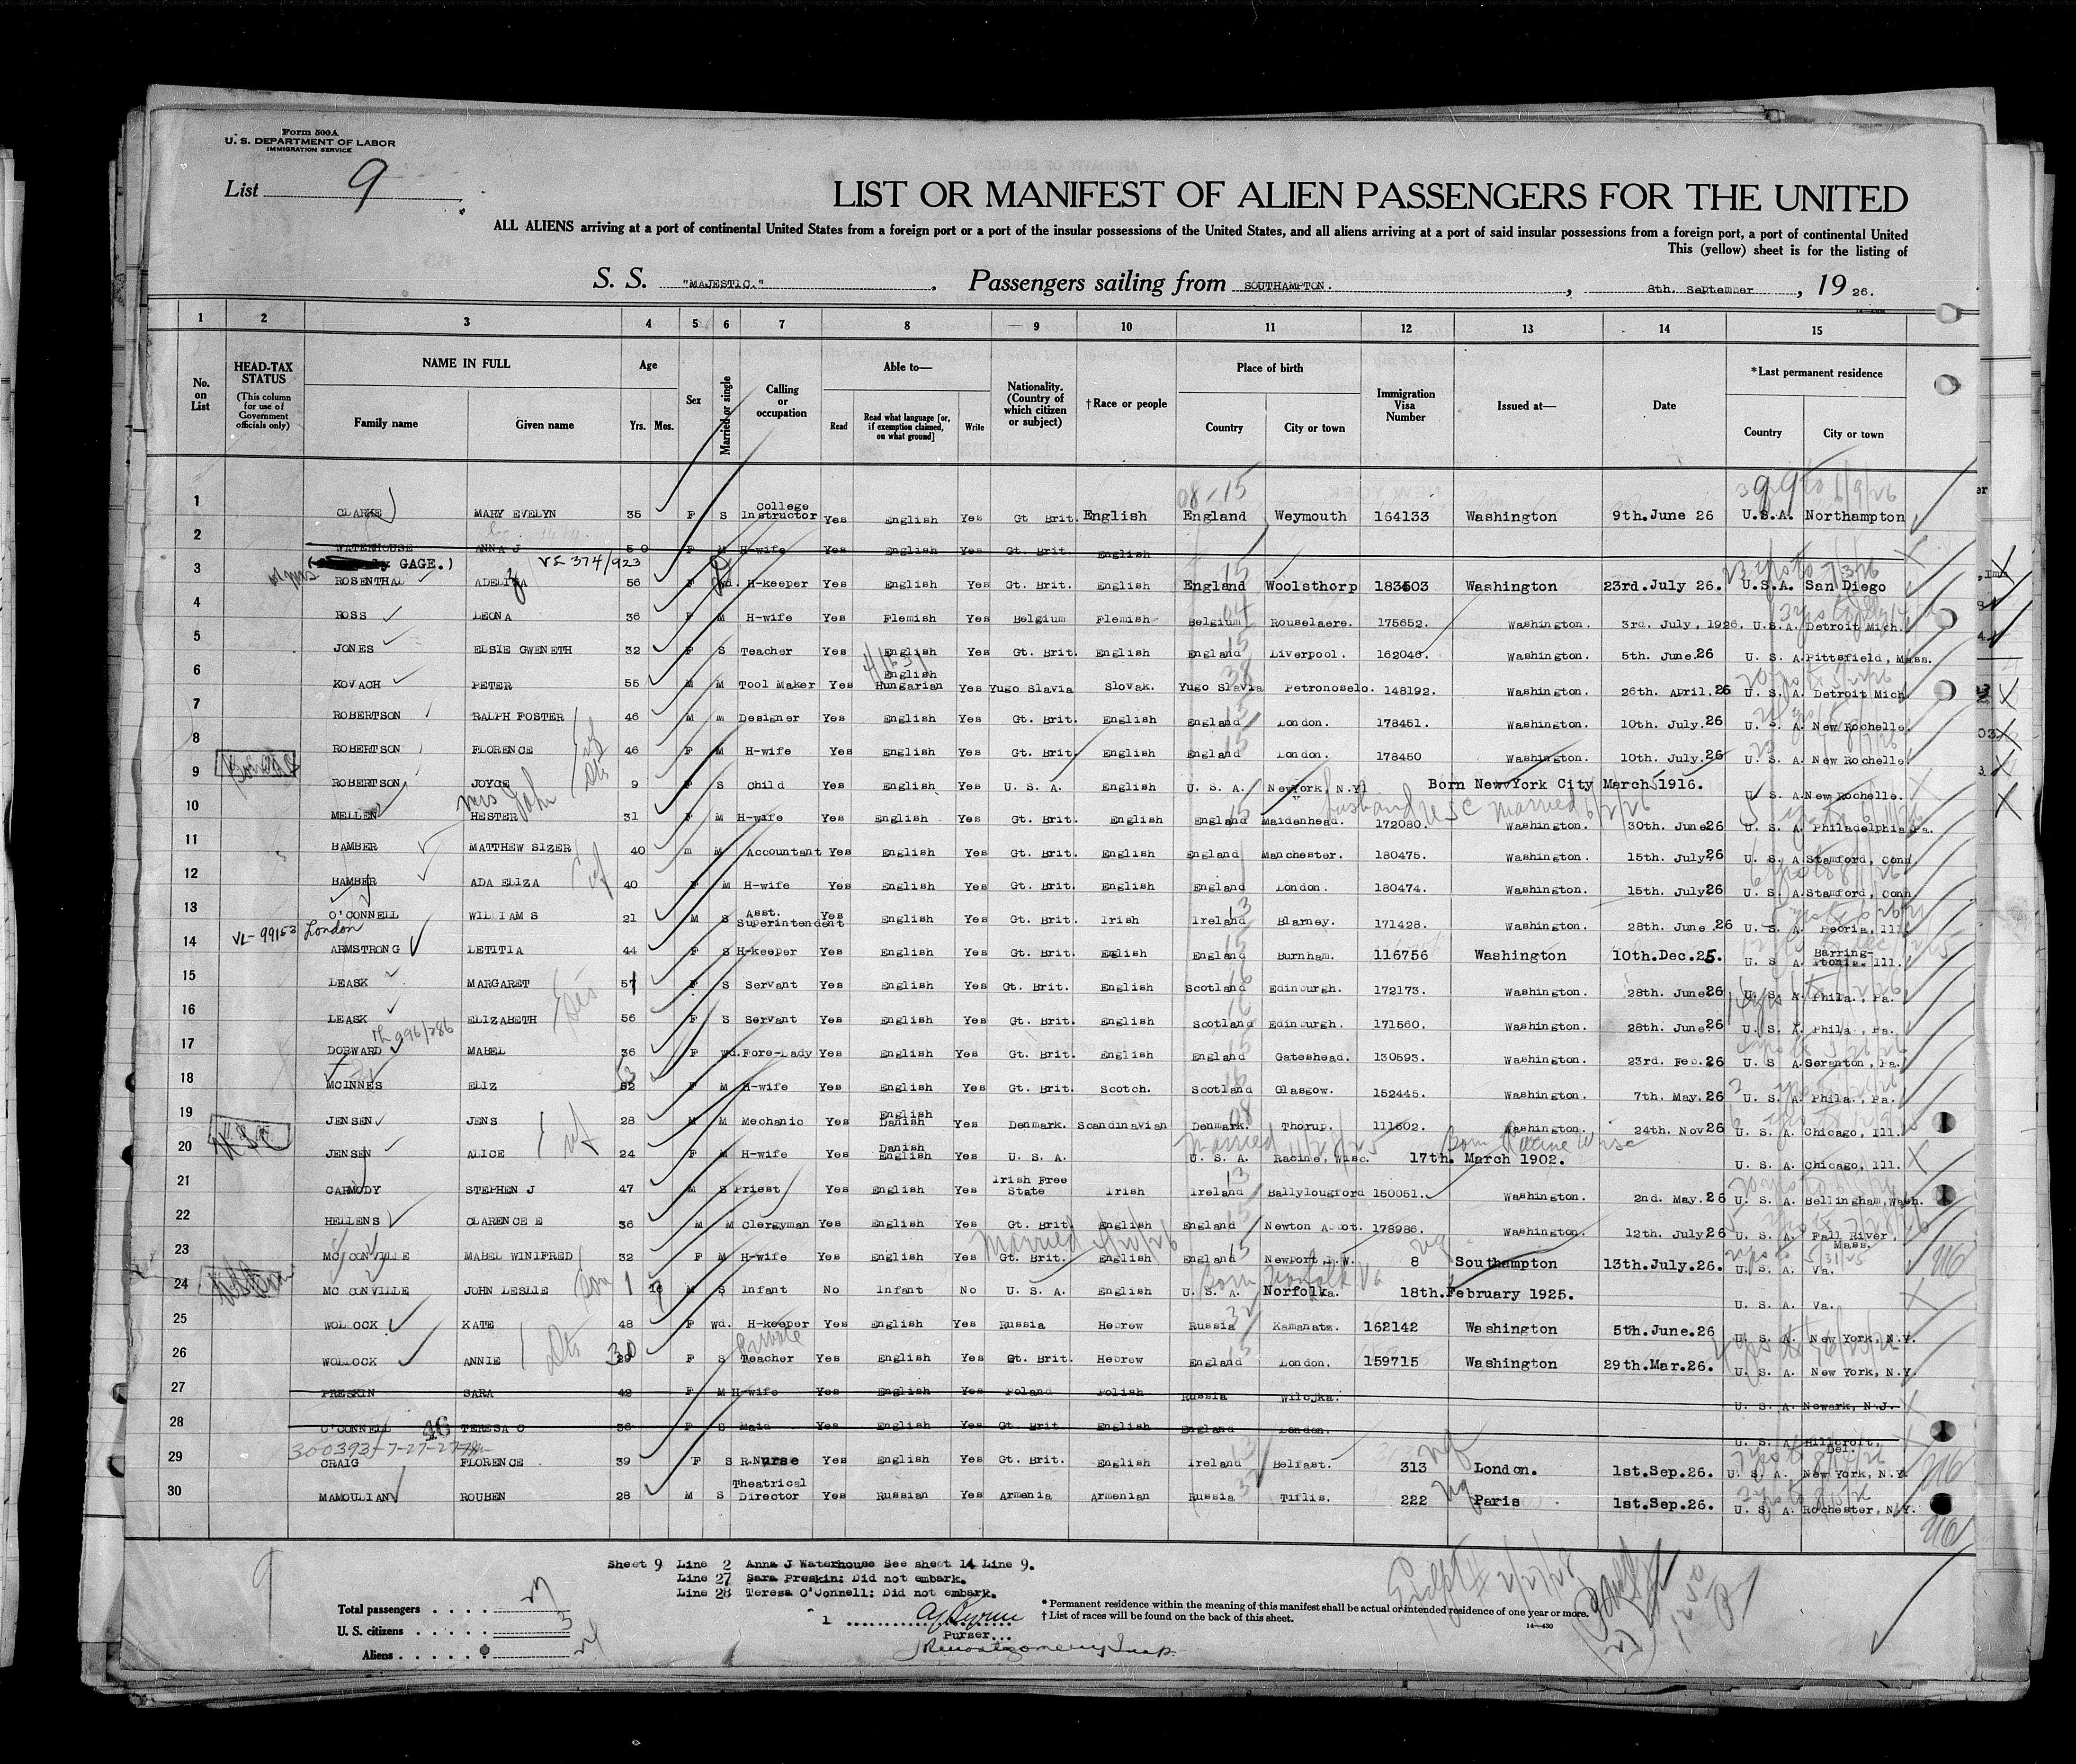 Form 500A
U. S. DEPARTMENT OF LABOR
IMMIGRATION SERVICE
List 9
LIST OR MANIFEST OF ALIEN PASSENGERS FOR THE UNITED
ALL ALIENS arriving at a port of continental United States from a foreign port or a port of the insular possessions of the United States, and all aliens arriving at a port of said insular possessions from a foreign port, a port of continental United
This (yellow) sheet is for the listing of
S. S. "MAJESTIC." Passengers sailing from SOUTHAMPTON. , 8th. September , 19 26.
1 2 3 4 5 6 7 8 9 10 11 12 13 14 15
No. on List HEAD-TAX STATUS (This column for use of Government officials only) NAME IN FULL Family name Given name Age Yrs. Mos. Sex Married or single Calling or occupation Able to— Read Read what language [or, if exemption claimed, on what ground] Write Nationality. (Country of which citizen or subject) †Race or people Place of birth Country City or town Immigration Visa Number Issued at— Date *Last permanent residence Country City or town
1 CLARKE MARY EVELYN 35 F S College Instructor Yes English Yes Gt Brit. English England Weymouth 164133 Washington 9th.June 26 U.S.A. Northampton
2 WATERHOUSE ANNA J 50 F M H-wife Yes English Yes Gt. Brit. English
GAGE.) VS 374/923
3 ROSENTHAL 56 F Wd. H-keeper Yes English Yes Gt. Brit. English England Woolsthorp 183503 Washington 23rd.July 26. U.S.A. San Diego
4 ROSS LEONA 36 F M H-wife Yes Flemish Yes Belgium Flemish Belgium Rouselaere. 175652. Washington. 3rd. July, 1926. U.S.A. Detroit Mich.
5 JONES ELSIE GWENETH 32 F S Teacher Yes English Yes Gt. Brit. English England Liverpool. 162046. Washington. 5th. June.26 U. S. A. Pittsfield, Mass.
6 KOVACH PETER 55 M M Tool Maker Yes English Hungarian Yes Yugo Slavia Slovak. Yugo Slavia Petronoselo. 148192. Washington. 26th. April.26 U. S. A. Detroit Mich.
7 ROBERTSON RALPH FOSTER 46 M m Designer Yes English Yes Gt. Brit. English England London. 178451. Washington. 10th. July.26 U. S. A. New Rochelle.
8 ROBERTSON FLORENCE 46 F M H-wife Yes English Yes Gt. Brit. English England London. 178450 Washington. 10th. July.26 U. S. A. New Rochelle.
9 ROBERTSON JOYCE 9 F S Child Yes English Yes U. S. A. English U. S. A. NewYork, N.Y. Born NewYork City March 1916. U. S. A. New Rochelle.
Mrs John husband USC Married
10 MELLEN HESTER 31 F M H-wife Yes English Yes Gt. Brit. English England Maidenhead. 172080. Washington. 30th. June26 U. S. A. Philadelphia Pa.
11 BAMBER MATTHEW SIZER 40 m M Accountant Yes English Yes Gt. Brit. English England Manchester. 180475. Washington. 15th. July.26 U. S. A. Stamford, Conn
12 BAMBER ADA ELIZA 40 F M H-wife Yes English Yes Gt. Brit. English England London. 180474. Washington. 15th. July26 U. S. A. Stamford, Conn
13 O'CONNELL WILLIAM S 21 M S Asst. Superintendent Yes English Yes Gt. Brit. Irish Ireland Blarney. 171428. Washington. 28th. June 26 U. S. A. Peoria, Ill.
VL-99153 London
14 ARMSTRONG LETITIA 44 F S H-keeper Yes English Yes Gt. Brit. English England Burnham. 116756 Washington 10th.Dec.25. U. S A. Barring- Ill.
15 LEASK MARGARET 57 F S Servant Yes English Yes Gt. Brit. English Scotland Edinburgh. 172173. Washington. 28th. June26 U. S. A. Phila., Pa.
16 LEASK ELIZABETH 56 F S Servant Yes English Yes Gt. Brit. English Scotland Edinburgh. 171560. Washington. 28th. June.26 U. S. A. Phila , Pa.
17 DORWARD MABEL 36 F Wd. Fore-Lady Yes English Yes Gt. Brit. English England Gateshead. 130593. Washington. 23rd. Feb.26 U. S A. Scranton, Pa.
18 MCINNES ELIZ 62 F M H-wife Yes English Yes Gt. Brit. Scotch. Scotland Glasgow. 152445. Washington. 7th. May.26 U. S. A. Phila., Pa.
19 JENSEN JENS 28 M M Mechanic Yes English Danish Yes Denmark. Scandinavian Denmark. Thorup. 111602. Washington. 24th. Nov26 U. S. A. Chicago, Ill.
20 JENSEN ALICE 24 F M H-wife Yes Danish English Yes U. S. A. U. S. A. Racine, Wisc. 17th. March 1902. U. S. A. Chicago, Ill.
21 CARMODY STEPHEN J 47 M S Priest Yes English Yes Irish Free State Irish Ireland Ballylougford 150051. Washington. 2nd. May.26 U. S. A. Bellingham,Wash.
22 HELLENS CLARENCE E 36 M M Clergyman Yes English Yes Gt. Brit. English England Newton Abbot. 178986. Washington. 12th. July26 U. S. A. Fall River, Mass.
23 MC CONVILLE MABEL WINIFRED 32 F M H-wife Yes English Yes Gt. Brit. English England Newport I.W. 8 Southampton 13th.July.26. U. S. A. Va.
24 MC CONVILLE JOHN LESLIE M S Infant No Infant No U. S. A. English U. S. A. Norfolk. 18th.February 1925. U. S. A. Va.
25 WOLLOCK KATE 48 F Wd. H-keeper Yes English Yes Russia Hebrew Russia Kamanatz. 162142 Washington 5th.June.26 U. S. A. New York, N.Y.
26 WOLLOCK ANNIE 30 F S Private Teacher Yes English Yes Gt. Brit. Hebrew England London. 159715 Washington 29th.Mar.26. U. S. A. New York, N.Y.
27 PRESKIN SARA 42 F M H-wife Yes English Yes Poland Polish Russia Wilcjka. U. S. A. Newark, N.J.
28 O'CONNELL TERESA C 36 F S Maid Yes English Yes Gt. Brit. English England London. U. S. A. Hillcroft, Del.
300393-7-27-27
29 CRAIG FLORENCE 39 F S R.Nurse Yes English Yes Gt. Brit. English Ireland Belfast. 313 London. 1st.Sep.26. U. S. A. New York, N.Y.
30 MAMOULIAN ROUBEN 28 M S Theatrical Director Yes Russian Yes Armenia Armenian Russia Tiflis. 222 Paris 1st.Sep.26. U. S. A. Rochester, N.Y.
Sheet 9 Line 2 Anna J Waterhouse See sheet 14 Line 9.
Line 27 Sara Preskin: Did not embark.
Line 28 Teresa O'Connell: Did not embark.
Total passengers
U. S. citizens 3
Aliens
Purser...
* Permanent residence within the meaning of this manifest shall be actual or intended residence of one year or more.
† List of races will be found on the back of this sheet.
14—430